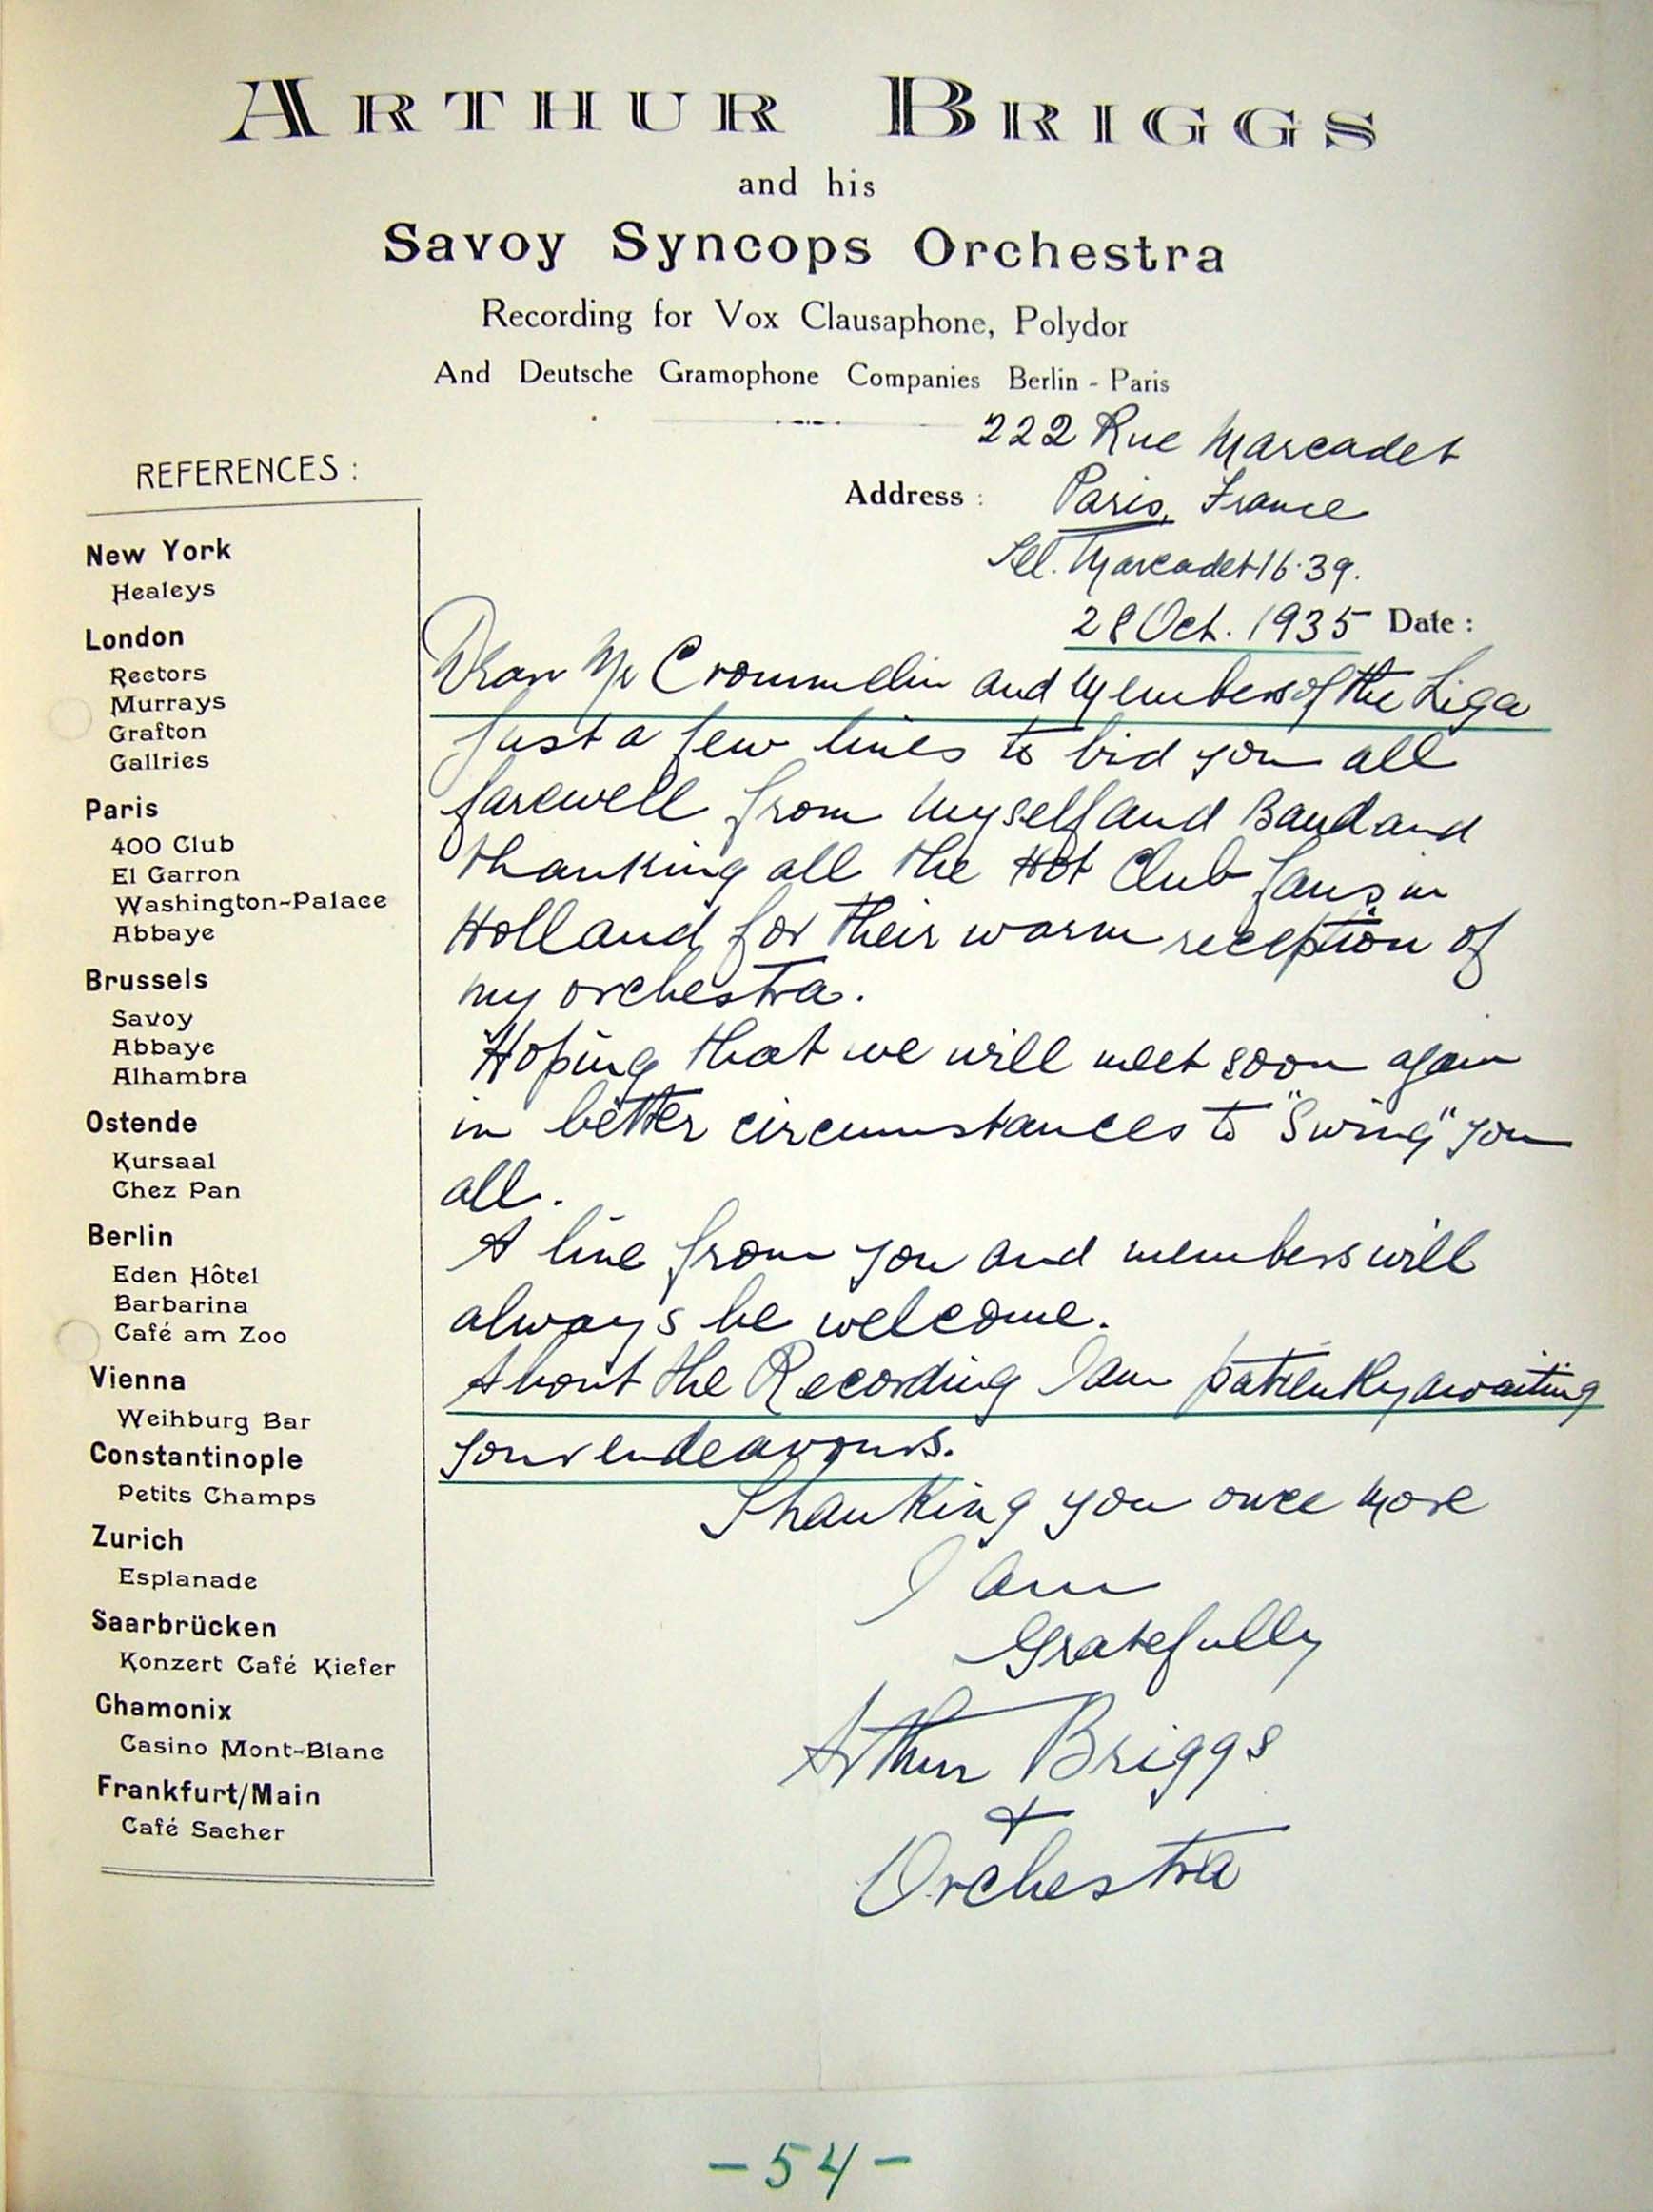 ARTHUR BRIGGS
and his
Savoy Syncops Orchestra
Recording for Vox Clausaphone, Polydor
And Deutsche Gramophone Companies Berlin - Paris
222 Rue Marcadet
Address : Paris, France
Tel. Marcadet 16.39.
28 Oct. 1935 Date :
REFERENCES :
New York
Healeys
London
Rectors
Murrays
Grafton
Gallries
Paris
400 Club
El Garron
Washington-Palace
Abbaye
Brussels
Savoy
Abbaye
Alhambra
Ostende
Kursaal
Chez Pan
Berlin
Eden Hôtel
Barbarina
Café am Zoo
Vienna
Weihburg Bar
Constantinople
Petits Champs
Zurich
Esplanade
Saarbrücken
Konzert Café Kiefer
Chamonix
Casino Mont-Blanc
Frankfurt/Main
Café Sacher
Dear Mr Crommelin and Members of the Liga
Just a few lines to bid you all
farewell from myself and Band and
thanking all the Hot Club fans in
Holland for their warm reception of
my orchestra.
Hoping that we will meet soon again
in better circumstances to "Swing" you
all.
A line from you and members will
always be welcome.
About the Recording I am patiently awaiting
your endeavours.
Thanking you once more
I am
Gratefully
Arthur Briggs
+
Orchestra
- 54 -